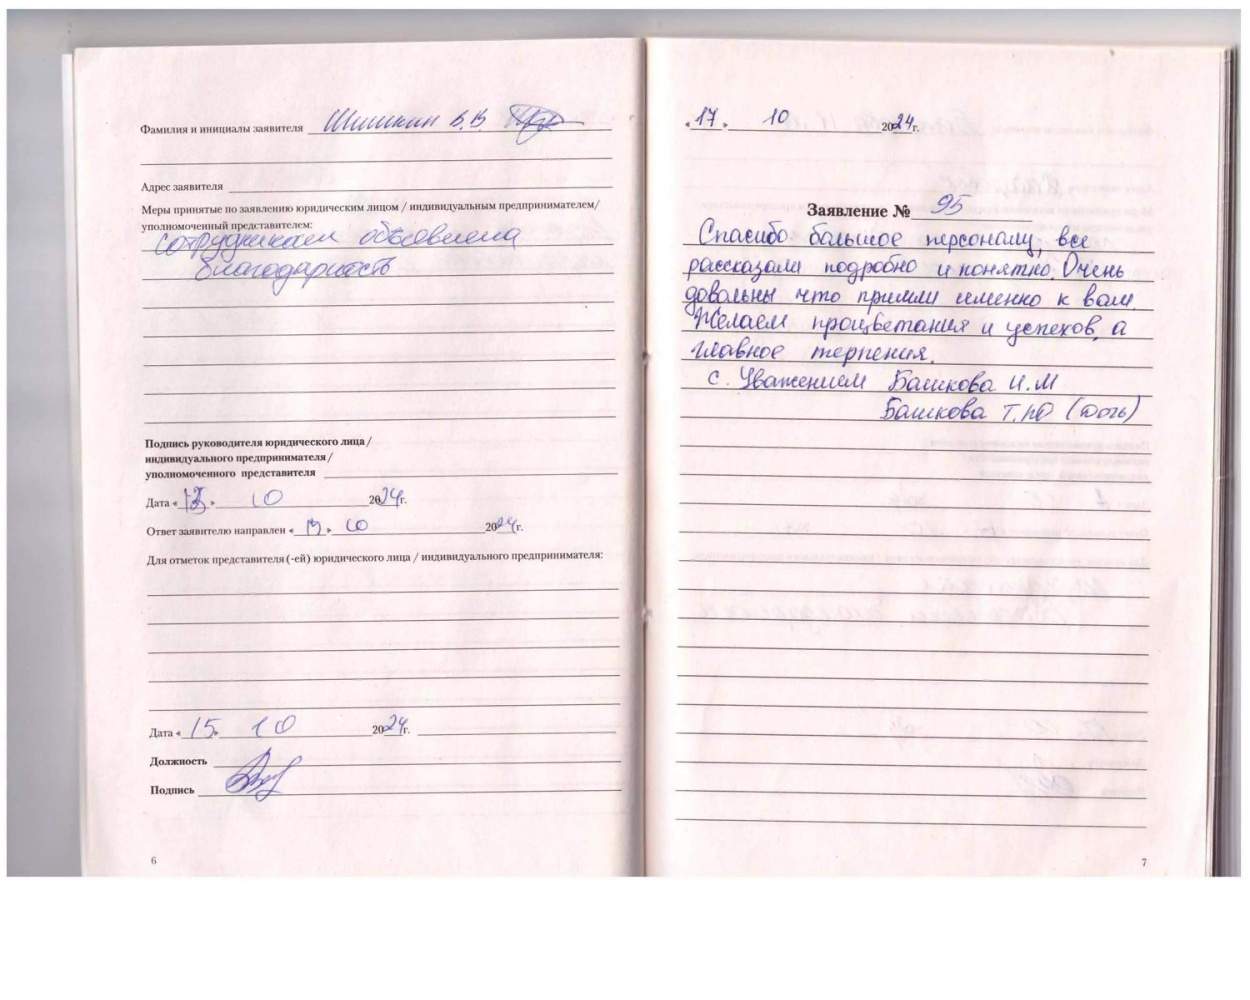 Фамилия и инициалы заявителя Шишкин В.В.
Адрес заявителя
Меры принятые по заявлению юридическим лицом / индивидуальным предпринимателем/
уполномоченный представителем:
сотрудникам объявлена
благодарность
Подпись руководителя юридического лица /
индивидуального предпринимателя /
уполномоченного представителя
Дата « » 10 2024г.
Ответ заявителю направлен « » 10 2024г.
Для отметок представителя (-ей) юридического лица / индивидуального предпринимателя:
Дата «15» 10 2024г.
Должность
Подпись
6
«17» 10 2024г.
Заявление № 95
Спасибо большое персоналу, все
рассказали подробно и понятно. Очень
довольны что пришли именно к вам.
Желаем процветания и успехов, а
главное терпения.
с. Уважением Башкова И.М
Башкова Т.Ю (дочь)
7